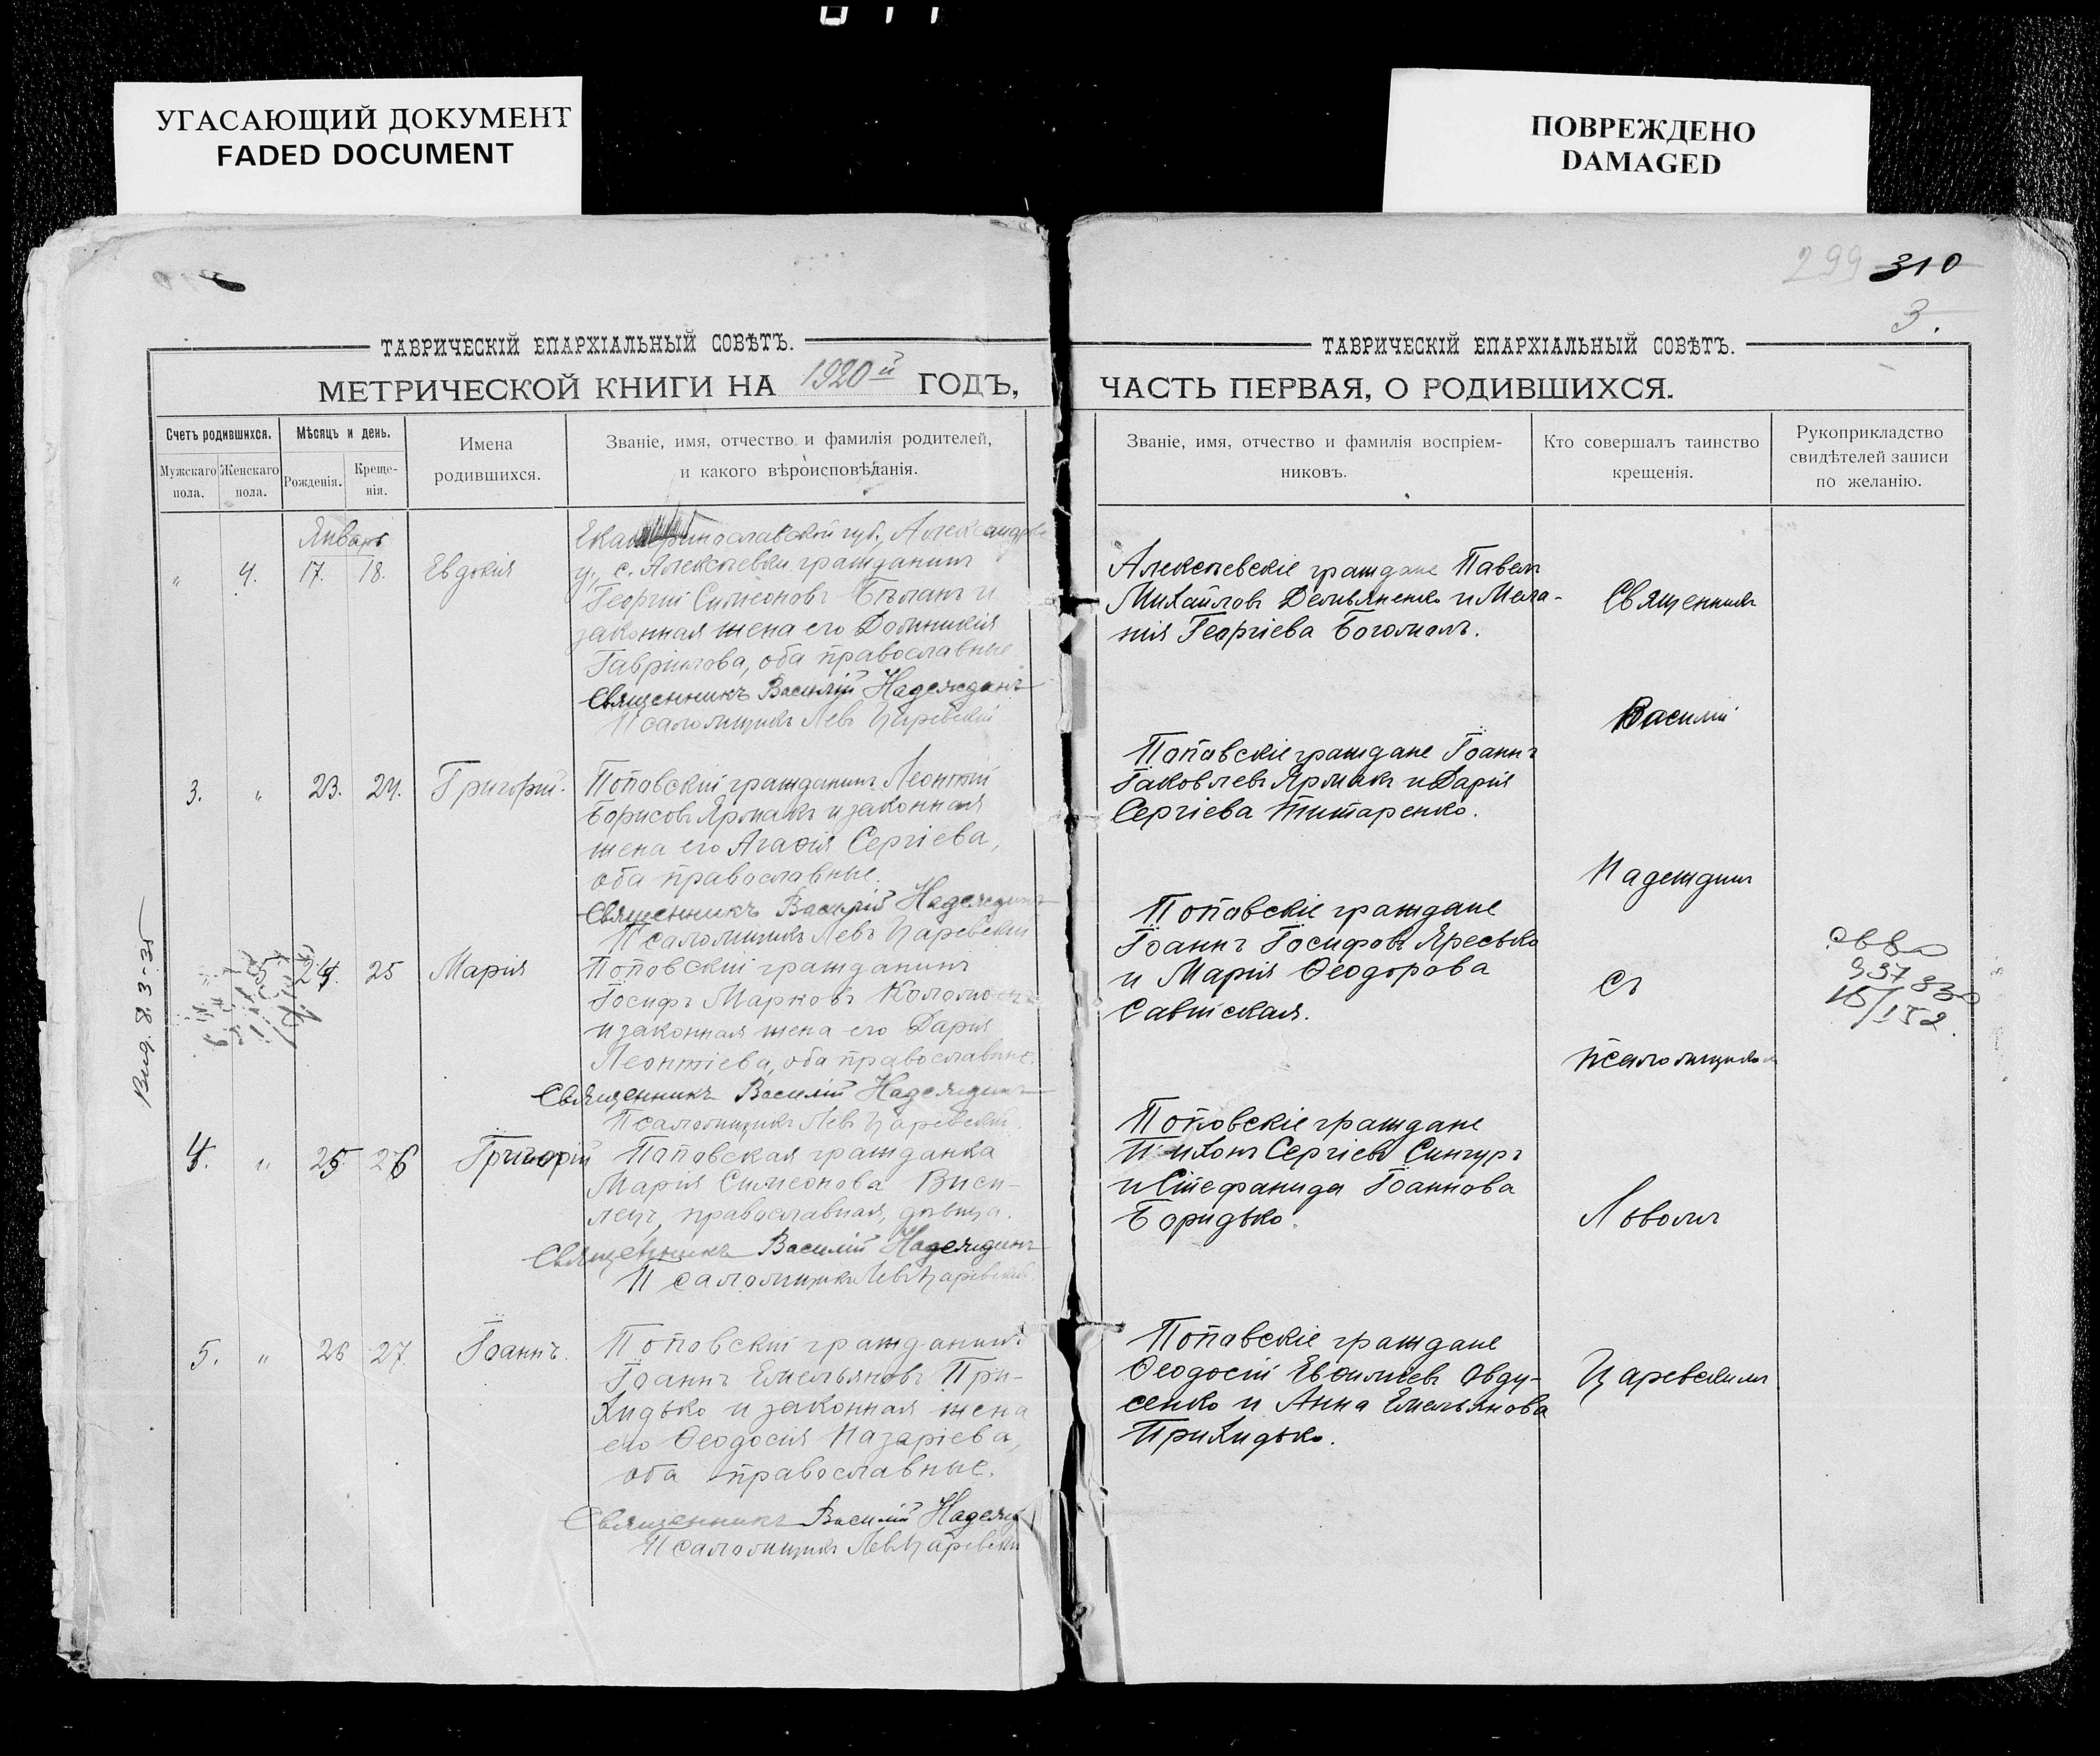 УГАСАЮЩИЙ ДОКУМЕНТ
FADED DOCUMENT
ПОВРЕЖДЕНО
DAMAGED
299 310
3.
ТАВРИЧЕСКІЙ ЕПАРХІАЛЬНЫЙ СОВѢТЪ.
МЕТРИЧЕСКОЙ КНИГИ НА 1920й ГОДЪ,
Счетъ родившихся.
Мужскаго пола.
Женскаго пола.
Мѣсяцъ и день.
Рожденія.
Креще-
нія.
Имена
родившихся.
Званіе, имя, отчество и фамилія родителей,
и какого вѣроисповѣданія.
Январь
" 4. 17. 18. Евдокія
Екатеринославской губ., Александров
у., с. Алексѣевки гражданинъ
Георгій Симеоновъ Бѣланъ и
законная жена его Домникія
Гавріилова, оба православные
Священникъ Василій Надеждинъ
Псаломщикъ Левъ Царевскій
3. " 23. 24. Григорій.
Поповскій гражданинъ Леонтій
Борисовъ Ярмакъ и законная
жена его Агафія Сергіева,
оба православные.
Священникъ Василій Надеждинъ
Псаломщикъ Левъ Царевскій
5 24. 25 Марія
Поповскій гражданинъ
Іосифъ Марковъ
и законная жена его Дарія
Леонтіева, оба православные.
Священникъ Василій Надеждинъ
Псаломщикъ Левъ Царевскій.
4. " 25. 26 Григорій
Поповская гражданка
Марія Симеонова Виси-
лецъ, православная, дѣвица.
Священникъ Василій Надеждинъ
Псаломщикъ Левъ Царевскій.
5. " 26 27. Іоаннъ.
Поповскій гражданинъ
Іоаннъ Емельяновъ При-
хидько и законная жена
его Ѳеодосія Назаріева,
оба православные.
Священникъ Василій Надежд
Псаломщикъ Левъ Царевскій
Вид. 8.3-35
ТАВРИЧЕСКІЙ ЕПАРХІАЛЬНЫЙ СОВѢТЪ.
ЧАСТЬ ПЕРВАЯ, О РОДИВШИХСЯ.
Званіе, имя, отчество и фамилія воспріем-
никовъ.
Кто совершалъ таинство
крещенія.
Рукоприкладство
свидѣтелей записи
по желанію.
Алексѣевскіе граждане Павелъ
Михайловъ Демьяненко и Мела-
нія Георгіева Богомолъ.
Поповскіе граждане Іоаннъ
Іаковлевъ Ярмакъ и Дарія
Сергіева Титаренко.
Поповскіе граждане
Іоаннъ Іосифовъ Яресько
и Марія Ѳеодорова
Савитская.
Поповскіе граждане
Тихонъ Сергіевъ Сингуръ
и Стефанида Іоаннова
Боридько.
Поповскіе граждане
Ѳеодосій Евфиміевъ Овду-
сенко и Анна Емельянова
Прихидько.
Священникъ
Василій
Надеждинъ
съ
псаломщикомъ
Львомъ
Царевскимъ
15/152